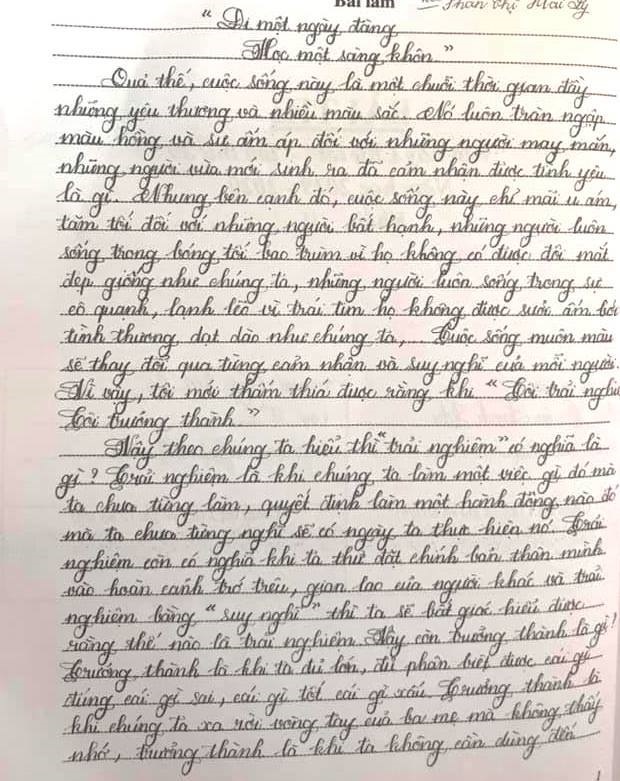 Bài làm Phan Thị Mai Ly
“ Đi một ngày đàng
Học một sàng khôn ”
Quả thế, cuộc sống này là một chuỗi thời gian đầy
những yêu thương và nhiều màu sắc. Nó luôn tràn ngập
màu hồng và sự ấm áp đối với những người may mắn,
những người vừa mới sinh ra đã cảm nhận được tình yêu
là gì. Nhưng bên cạnh đó, cuộc sống này chỉ mãi u ám,
tăm tối đối với những người bất hạnh, những người luôn
sống trong bóng tối bao trùm vì họ không có được đôi mắt
đẹp giống như chúng ta, những người luôn sống trong sự
cô quạnh, lạnh lẽo vì trái tim họ không được sưởi ấm bởi
tình thương dạt dào như chúng ta,... Cuộc sống muôn màu
sẽ thay đổi qua từng cảm nhận và suy nghĩ của mỗi người.
Vì vậy, tôi mới thấm thía được rằng khi “ Tôi trải nghiệm
Tôi trưởng thành. ”
Vậy theo chúng ta hiểu thì “trải nghiệm” có nghĩa là
gì? Trải nghiệm là khi chúng ta làm một việc gì đó mà
ta chưa từng làm, quyết định làm một hành động nào đó
mà ta chưa từng nghĩ sẽ có ngày ta thực hiện nó. Trải
nghiệm còn có nghĩa khi ta thử đặt chính bản thân mình
vào hoàn cảnh trớ trêu, gian lao của người khác và trải
nghiệm bằng “ suy nghĩ ” thì ta sẽ bất giác hiểu được
rằng thế nào là trải nghiệm. Vậy còn trưởng thành là gì?
Trưởng thành là khi ta đủ lớn, đủ phân biệt được cái gì
đúng cái gì sai, cái gì tốt cái gì xấu. Trưởng thành là
khi chúng ta xa rời vòng tay của ba mẹ mà không thấy
nhớ, trưởng thành là khi ta không cần dùng đến